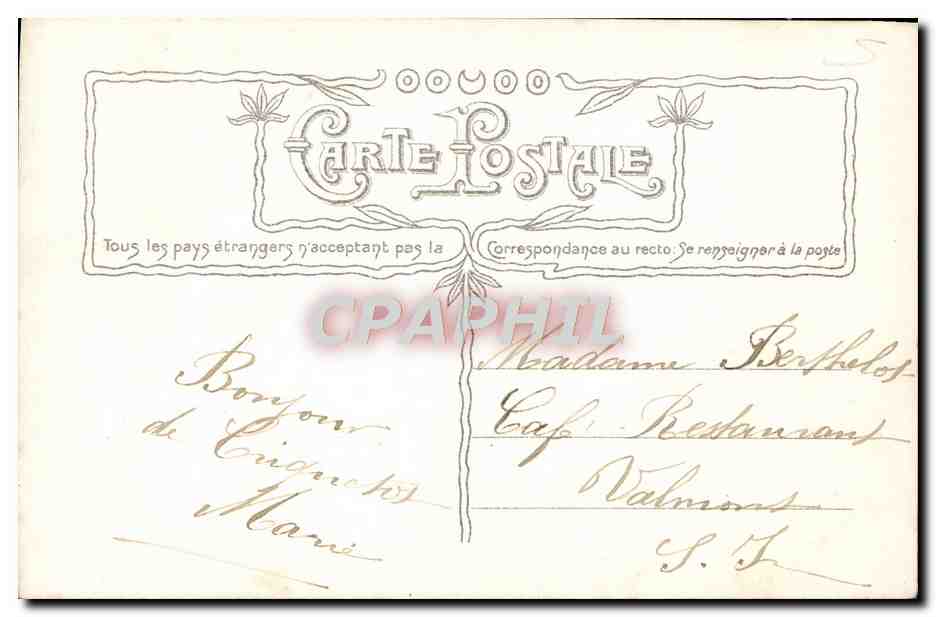 CARTE POSTALE
Tous les pays étrangers n'acceptant pas la Correspondance au recto: Se renseigner à la poste
CPAPHIL
Bonjour
de Criquetot
Marie
Madame Berthelot
Café Restaurant
Valmont
S. I.